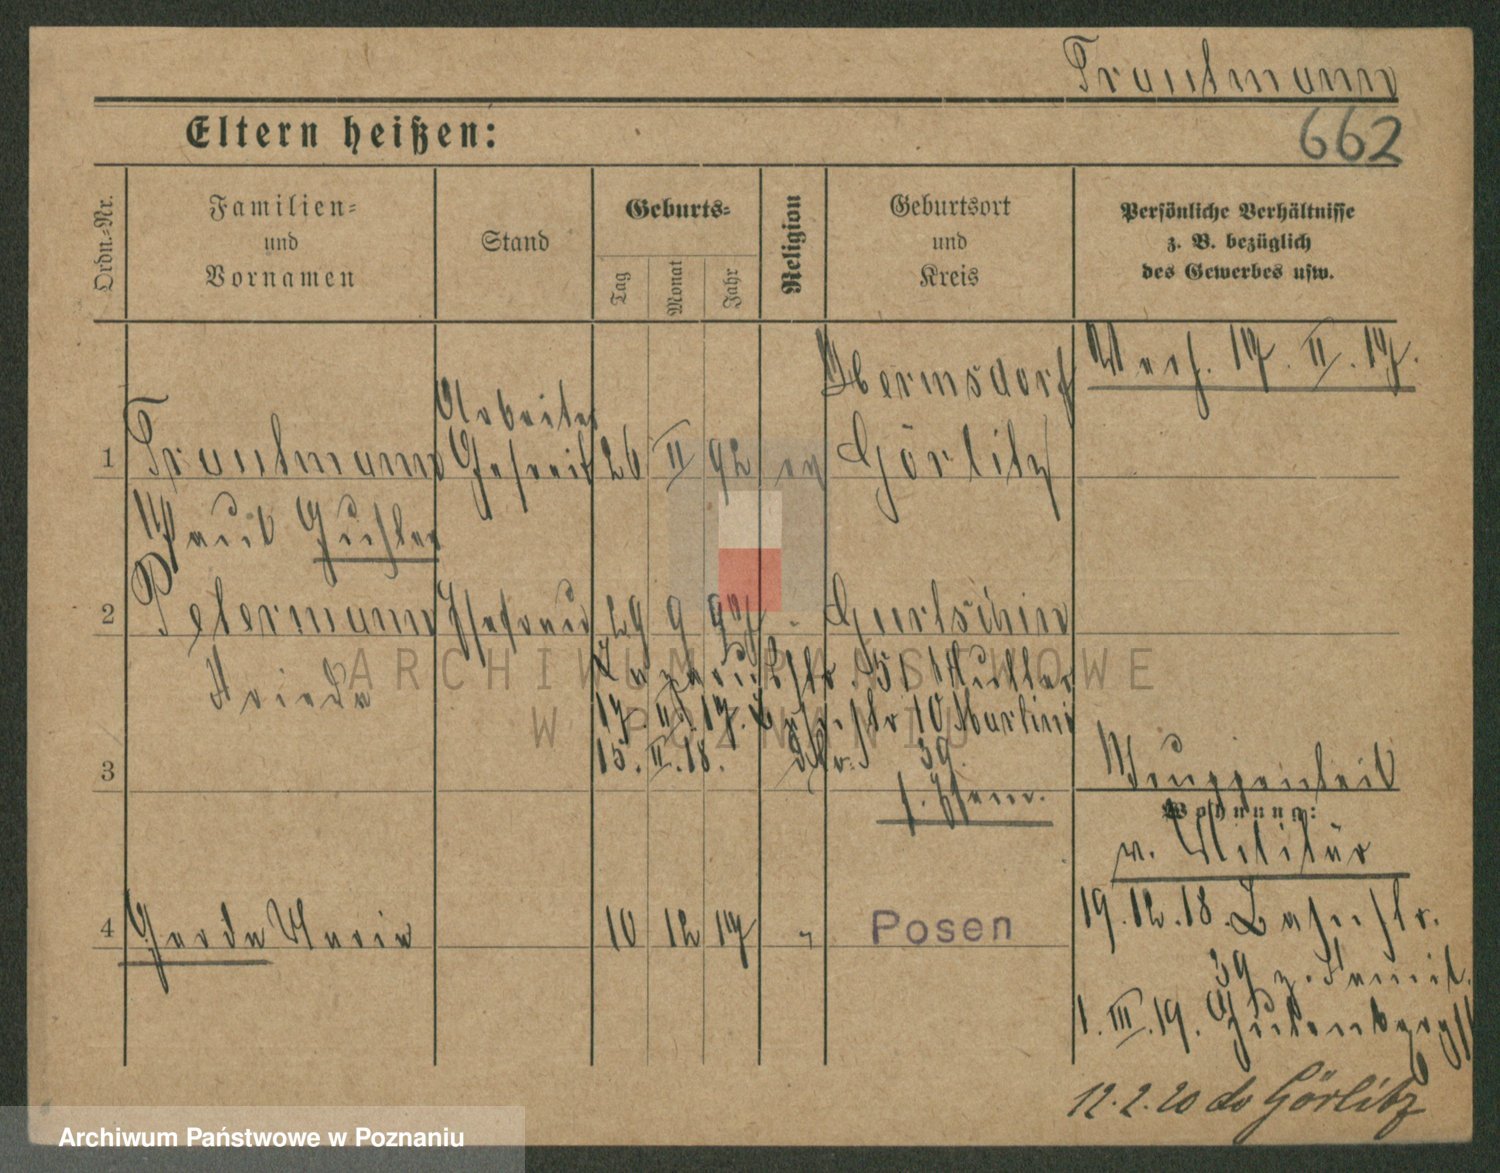 Trautmann
662
Eltern heißen:
Ordn.-Nr.
Familien-
und
Vornamen
Stand
Geburts-
Tag
Monat
Jahr
Religion
Geburtsort
und
Kreis
Persönliche Verhältnisse
z. B. bezüglich
des Gewerbes usw.
Verh. 17. II. 17.
1
Trautmann
Paul Gustav
Arbeiter
Gefreit
26 II 92 ev
Hermsdorf
Görlitz
2
Petermann
Frieda
Ehefrau
29 9 97
Gurtschin
51 Müller
17. II. 17. 10 Martini
15. II. 18. 39.
3
z. Ehem.
Wohnung:
v. Militär
4 Gerda Maria 10 12 17 " Posen
19.12.18.
39 z. Famil.
1. III. 19. Gutenbergstr
12.2.20 Görlitz
ARCHIWUM PAŃSTWOWE
W POZNANIU
Archiwum Państwowe w Poznaniu